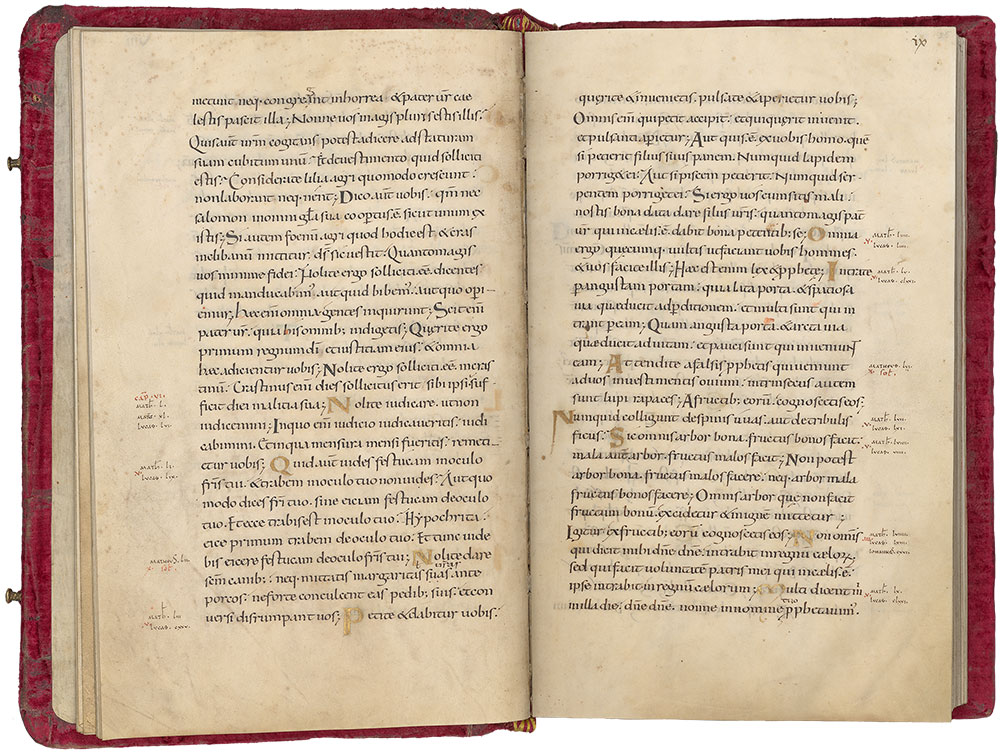 metunt neq· congregant in horrea · & pater ur̄ cae
lestis pascit illa; Nonne vos magis pluris estis illis ·
Quis aut̄ urm̄ cogitans potest adicere ad staturam
suam cubitum unū · Et de vestimento quid solliciti
estis · Considerate lilia agri quomodo crescunt ·
non laborant neq· nent; Dico aut̄ vobis · qm̄ nec
salomon in omni gl̄a sua coopertus ē sicut unum ex
istis; Si autem foenū agri quod hodie est & cras
in clibanū mittitur · d̄s sic vestit · Quanto magis
vos minime fidei · Nolite ergo solliciti eē · dicentes
quid manducabimꝰ · aut quid bibemꝰ · aut quo operi
emur; haec em̄ omnia gentes inquirunt; Scit em̄
pater ur̄ · quia his omnib; indigetis; Querite ergo
primum regnum di̅ · et iustitiam eius · & omnia
haec adicientur vobis; Nolite ergo solliciti eē · in cras
tinū · Crastinus em̄ dies sollicitus erit sibi ipsi suf
ficit diei malitia sua; Nolite iudicare · ut non
iudicemini; In quo em̄ iudicio iudicaveritis · iudi
cabimini · Et in qua mensura mensi fueritis · remeti
etur vobis; Quid aut̄ vides festucam in oculo
fr̄is tui · & trabem in oculo tuo non vides · Aut quo
modo dices fr̄i tuo · sine eiciam festucam de oculo
tuo · Et ecce trabis est in oculo tuo · Hypochrita ·
eice primum trabem de oculo tuo · Et tunc vide
bis eicere festucam de oculo fr̄is tui; Nolite dare
sc̄m canib; · neq· mittatis margaritas vr̄as ante
porcos · ne forte conculcent eas pedib; suis · et con
versi disrumpant vos; Petite & dabitur vobis ·
cap̄ · VI ·
math̄ · L ·
XL ·
lucas · LVI ·
math̄ · LI ·
lucas · LVI ·
matheus S · LII ·
X · sol̄ ·
math̄ · LIII
lucas · CXXV ·
IX
querite & invenietis · pulsate & aperietur vobis;
Omnis em̄ qui petit accipit · et qui querit invenit ·
et pulsanti aperietur; Aut quis ē ex vobis homo · quē
si petierit filius suus panem · Numquid lapidem
porriget ei · Aut si piscem petierit · Numquid ser
pentem porriget ei · Si ergo vos cum sitis mali ·
nostis bona data dare filiis vr̄is · quanto magis pat̄
ur̄ qui in caelis ē · dabit bona petentib; se; Omnia
ergo quecumq· vultis ut faciant vobis homines ·
& vos facite illis; Haec est enim lex & p̄phetae; Intrate
per angustam portam · quia lata porta & spatiosa
via quae ducit ad perditionem · et multi sunt qui in
trant per eam; Quam angusta porta · & arcta via
quae ducit ad vitam · et pauci sunt qui inveniunt
eam; Attendite a falsis p̄phetis qui veniunt
ad vos in vestimentis ovium · intrinsecus autem
sunt lupi rapaces; A fructib; eorū cognoscetis eos ·
Numquid colligunt de spinis uvas · aut de tribulis
ficus · Sic omnis arbor bona · fructus bonos facit ·
mala aut̄ arbor fructus malos facit; Non potest
arbor bona · fructus malos facere · neq· arbor mala
fructus bonos facere; Omnis arbor que non facit
fructum bonū · excidetur & in igne mittetur ·
Igitur ex fructib; eorū cognoscetis eos; Non omnis
qui dicit mihi dn̄e dn̄e · intrabit in regnū caelorꝫ ·
sed qui facit voluntatem patris mei qui in caelis ē ·
ipse intrabit in regnū caelorum; Multi dicent m̄
in illa die · dn̄e dn̄e · nonne in nomine tuo p̄phetavim̄ ·
math̄ · LIIII ·
lucas · LIIII ·
math̄ · LV ·
lucas · CLXX ·
matheus · LVI ·
X · sol̄ ·